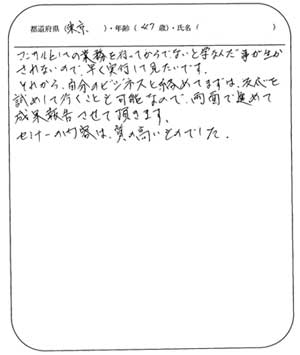 都道府県(東京)・年齢(47歳)・氏名( )
コンサルとしての業務を行ってからでないと学なんだ事が生か
されないので、早く実行して見たいです。
それから、自分のビジネスと絡めてまずは、反応を
試めして行くことも可能なので、両面で進めて
成果報告させて頂きます。
セミナーの内容は、質の高いものでした。